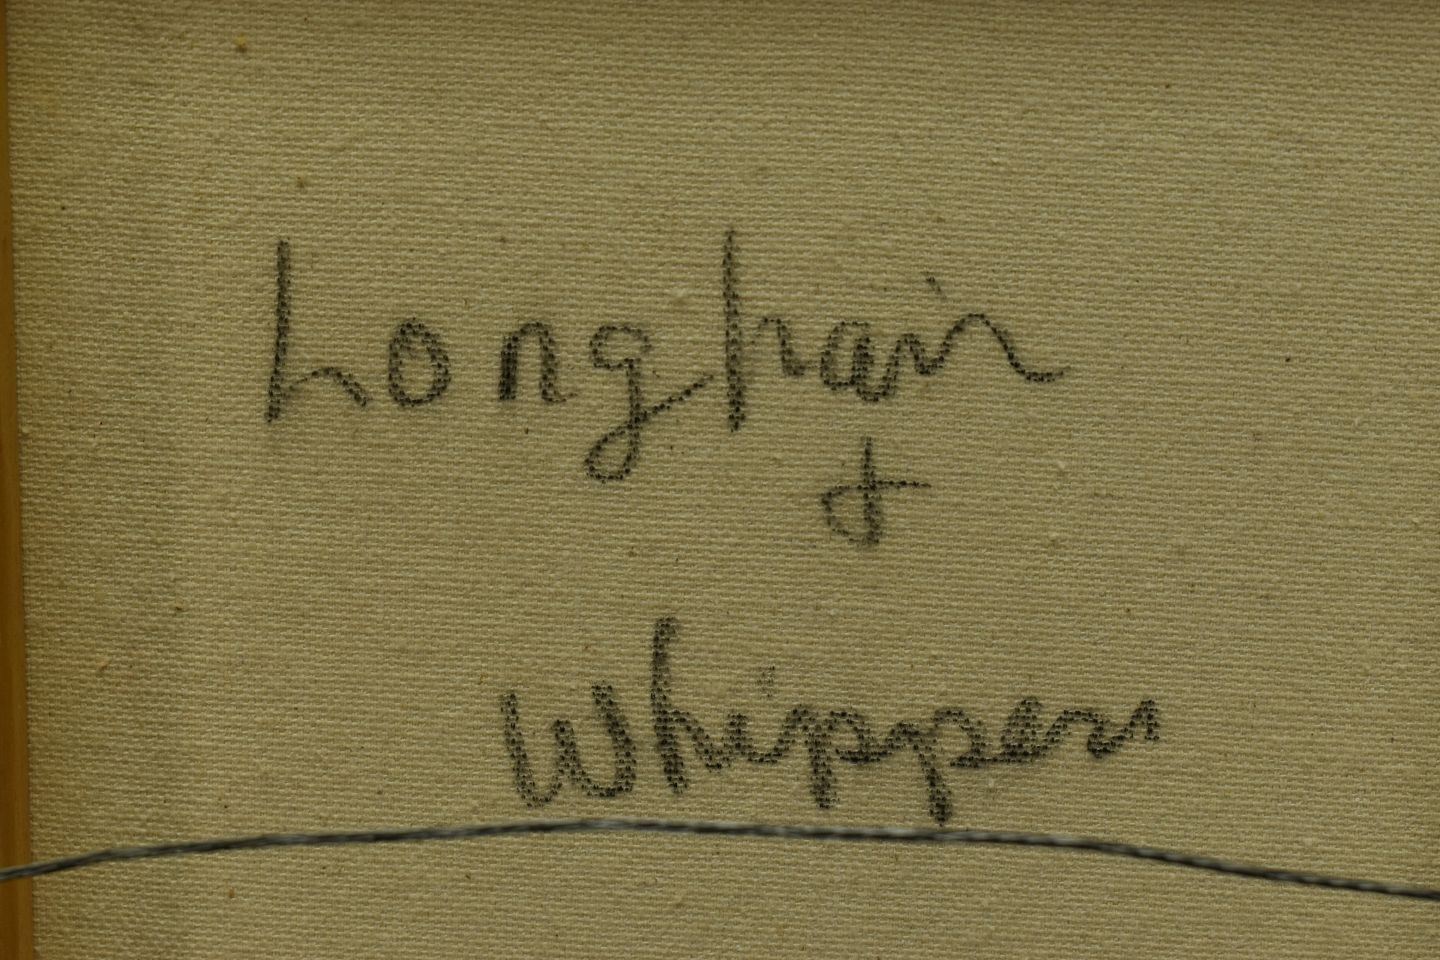 Longhair
&
Whippers